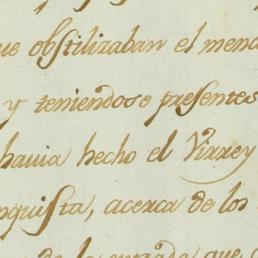 ue obstilizaban el meno
y teniendose presentes
havia hecho el Virrey
nquista, acerca de los
de la entrada que